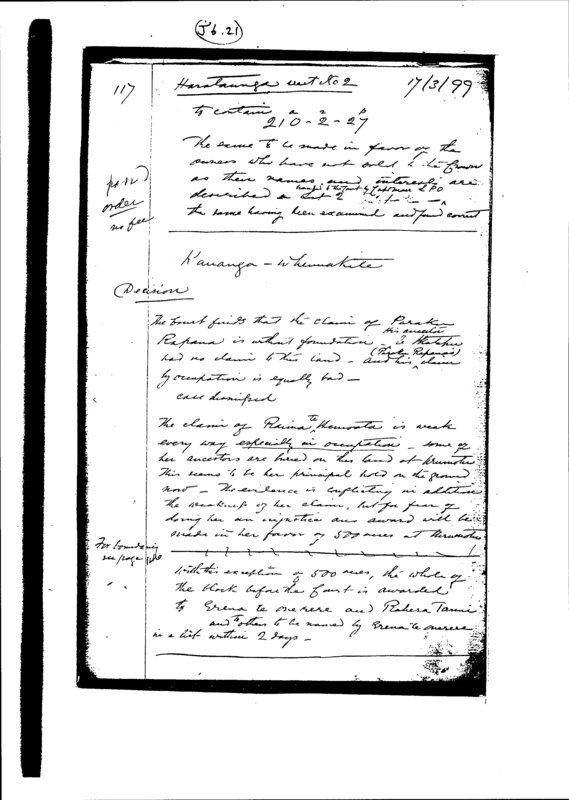 J6.21
117 Harataunga West No 2 17/3/99
to contain 210 - 2 - 27
a r p
The same to be made in favor of the
owners who have not sold to the Crown
as their names and interests are
handed to the Court by
described in List
order
no fee
the same having been examined and found correct
Kauanga - Whenuakite
Decision
The Court finds that the claim of Paraku
Rapana is without foundation - his ancestor
had no claim to this land - and his claim
(Paraku Rapana's)
by occupation is equally bad -
case dismissed
The claim of Raima te is weak
every way especially in occupation - some of
her ancestors are buried on this land at
This seems to be her principal hold on the ground
now - The evidence is conflicting in addition
the weakness of her claim, but for fear of
doing her an injustice an award will be
made in her favor of 500 acres at
For boundaries
see page
With the exception of 500 acres, the whole of
the block before the Court is awarded
to Erena te onerere and
and to others to be named by Erena te onerere
in a list within 2 days -